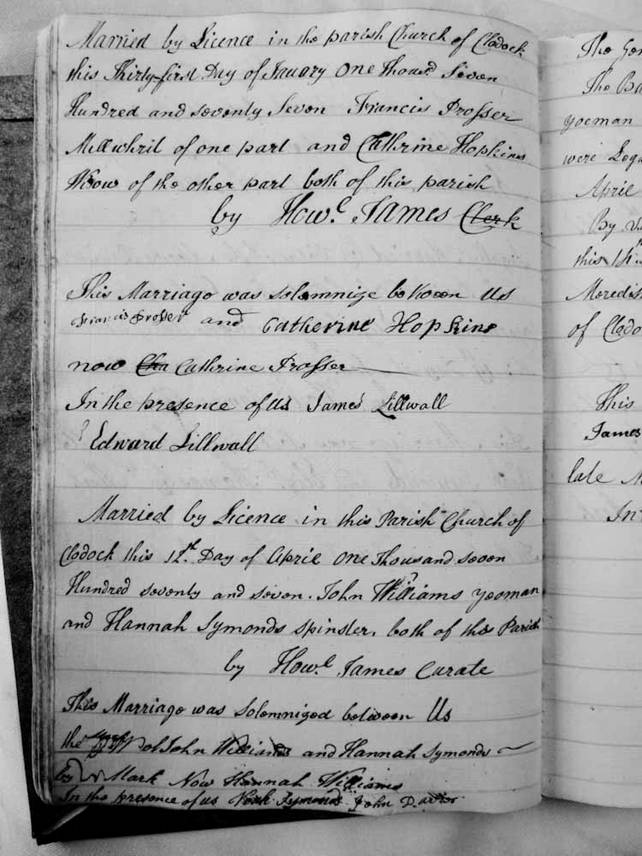 Married by Licence in the parish Church of Clodock
this Thirty-first Day of January One Thousd Seven
Hundred and seventy Seven Francis Prosser
Millwhrit of one part and Cathrine Hopkins
of the other part both of this parish
by Howl. James Clerk
This Marriage was solemnize between Us
Francis Prosser and Catherine Hopkins
now Cathrine Prosser
In the presence of us James Lillwall
Edward Lillwall
Married by Licence in this Parish Church of
Clodock this 12th Day of April One Thousand seven
Hundred seventy and seven. John Williams yeoman
and Hannah Symonds spinster. both of this Parish
by Howl. James Curate
This Marriage was Solemnized between Us
the of John Williams and Hannah Symonds
Mark Now Hannah Williams
In the presence of us Symonds John
The
The
yeoman
were
April
By
this
of Clodo
This
James
late
In